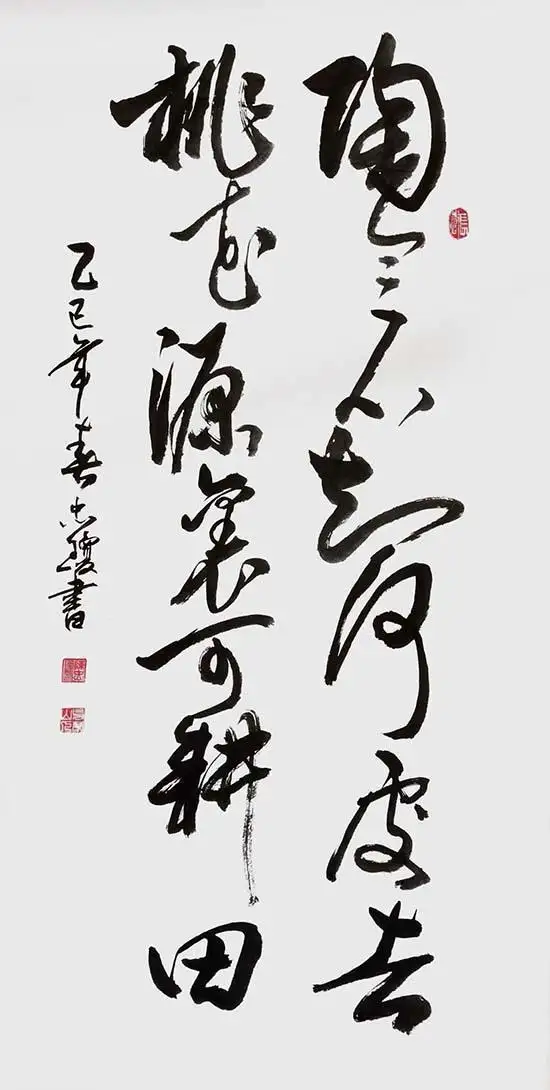 陶令不知何處去
桃花源裏可耕田
乙巳年春忠書